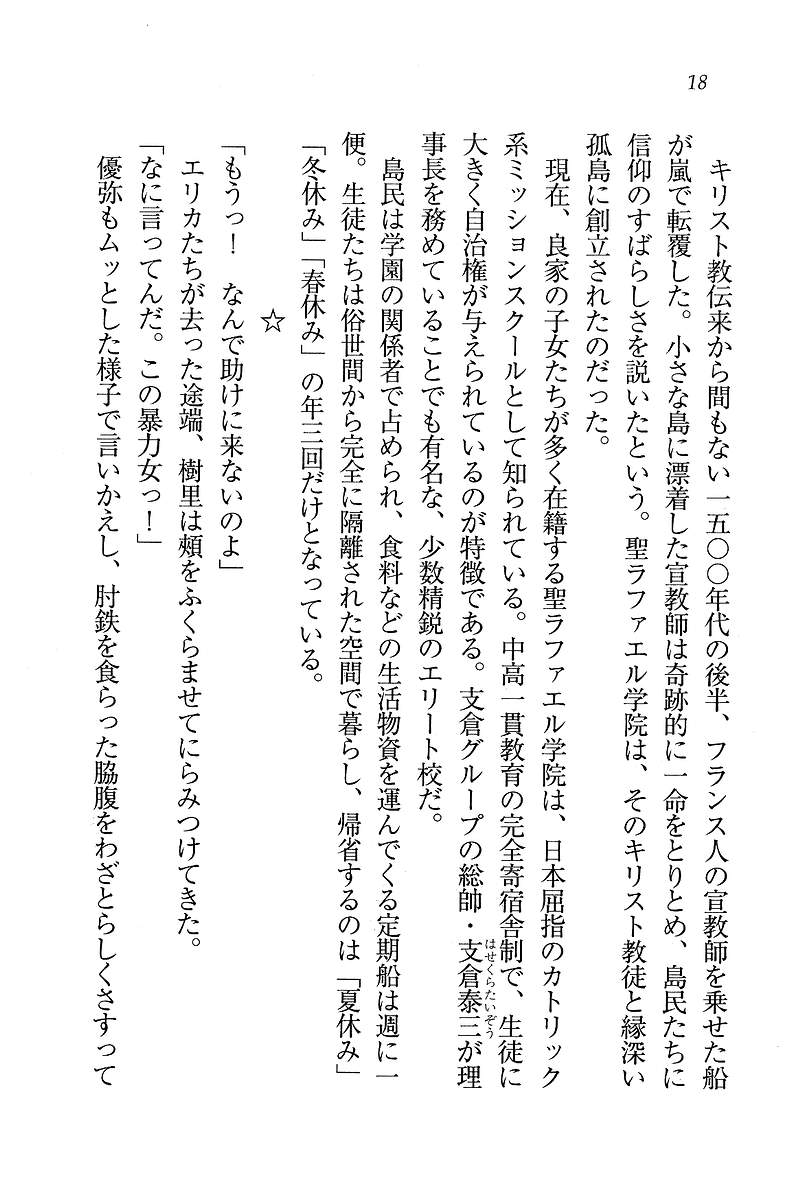 18
キリスト教伝来から間もない一五〇〇年代の後半、フランス人の宣教師を乗せた船
が嵐で転覆した。小さな島に漂着した宣教師は奇跡的に一命をとりとめ、島民たちに
信仰のすばらしさを説いたという。聖ラファエル学院は、そのキリスト教徒と縁深い
孤島に創立されたのだった。
現在、良家の子女たちが多く在籍する聖ラファエル学院は、日本屈指のカトリック
系ミッションスクールとして知られている。中高一貫教育の完全寄宿舎制で、生徒に
大きく自治権が与えられているのが特徴である。支倉グループの総帥・支倉泰三が理
はせくらたいぞう
事長を務めていることでも有名な、少数精鋭のエリート校だ。
島民は学園の関係者で占められ、食料などの生活物資を運んでくる定期船は週に一
便。生徒たちは俗世間から完全に隔離された空間で暮らし、帰省するのは「夏休み」
「冬休み」「春休み」の年三回だけとなっている。
☆
「もうっ！　なんで助けに来ないのよ」
エリカたちが去った途端、樹里は頰をふくらませてにらみつけてきた。
「なに言ってんだ。この暴力女っ！」
優弥もムッとした様子で言いかえし、肘鉄を食らった脇腹をわざとらしくさすって